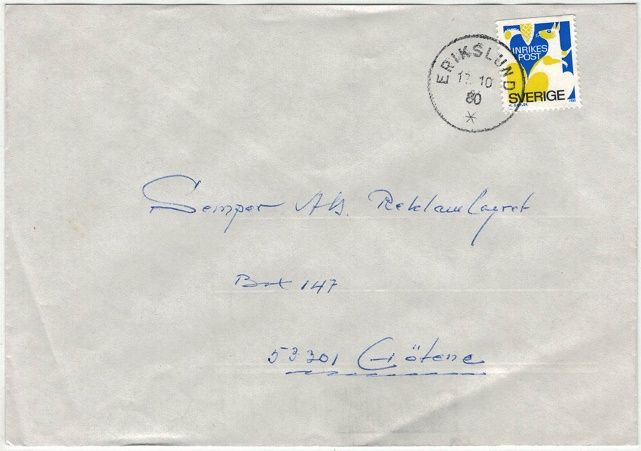 ERIKSLUND
17. 10
80
INRIKES
POST
SVERIGE
Semper AB. Reklamlagret
Box 147
53301 Götene